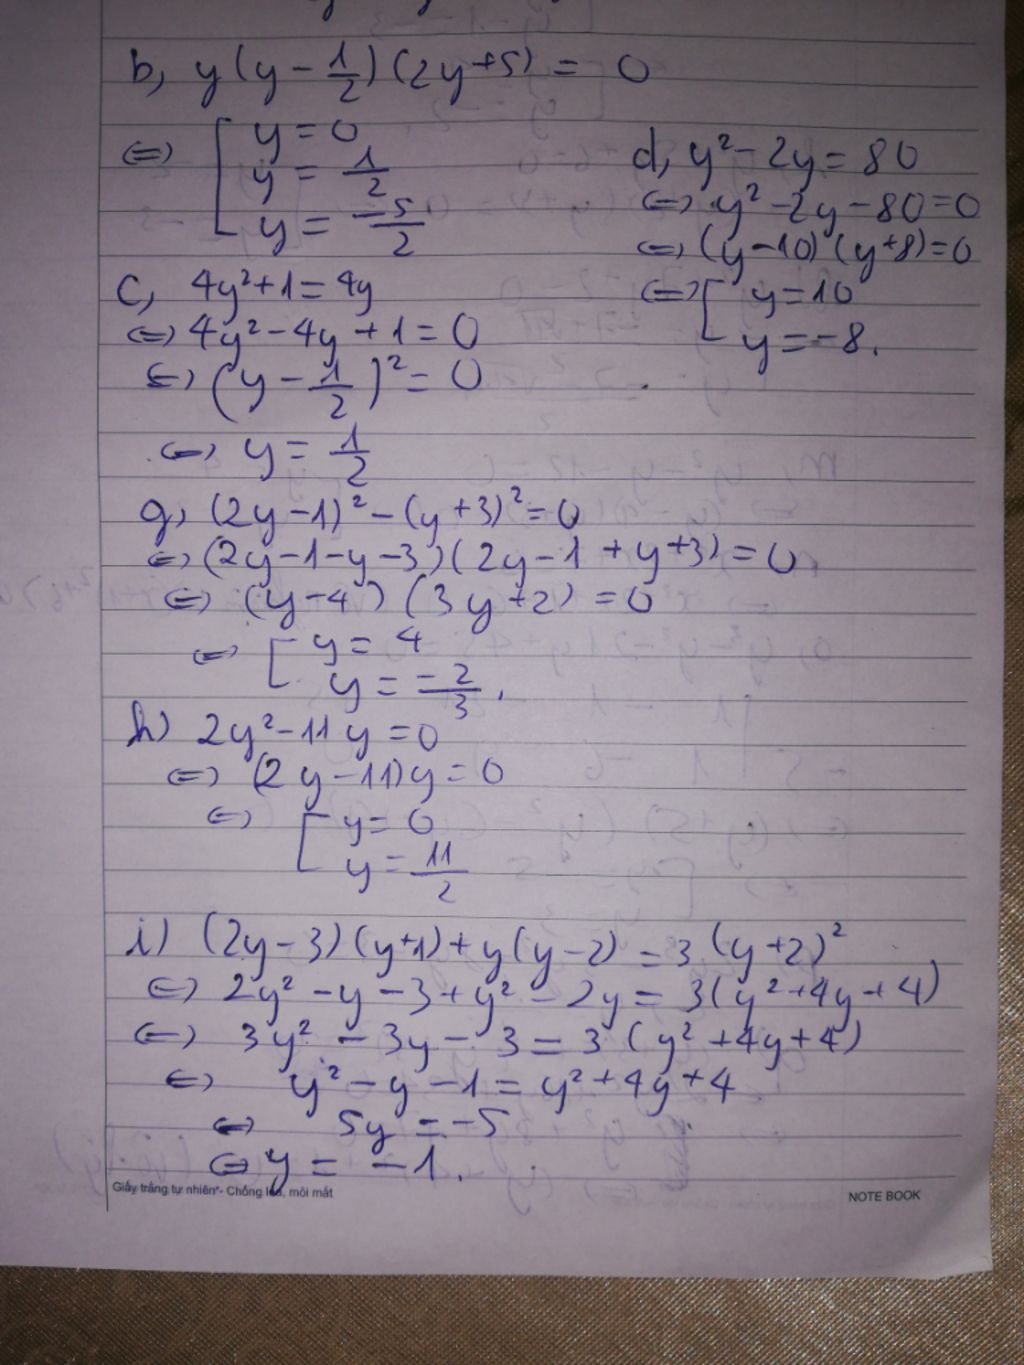 b, y(y - 1/2)(2y+5) = 0
⇔ [ y = 0
y = 1/2
y = -5/2
d, y² - 2y = 80
⇔ y² - 2y - 80 = 0
⇔ (y-10)(y+8) = 0
⇔ [ y = 10
y = -8.
c, 4y² + 1 = 4y
⇔ 4y² - 4y + 1 = 0
⇔ (y - 1/2)² = 0
⇔ y = 1/2
g, (2y-1)² - (y+3)² = 0
⇔ (2y-1-y-3)(2y-1+y+3) = 0
⇔ (y-4)(3y+2) = 0
⇔ [ y = 4
y = -2/3.
h) 2y² - 11y = 0
⇔ (2y-11)y = 0
⇔ [ y = 0
y = 11/2
i) (2y-3)(y+1) + y(y-2) = 3(y+2)²
⇔ 2y² - y - 3 + y² - 2y = 3(y²+4y+4)
⇔ 3y² - 3y - 3 = 3(y²+4y+4)
⇔ y² - y - 1 = y² + 4y + 4
⇔ 5y = -5
⇔ y = -1.
Giấy trắng tự nhiên - Chống lóa, mỏi mắt
NOTE BOOK